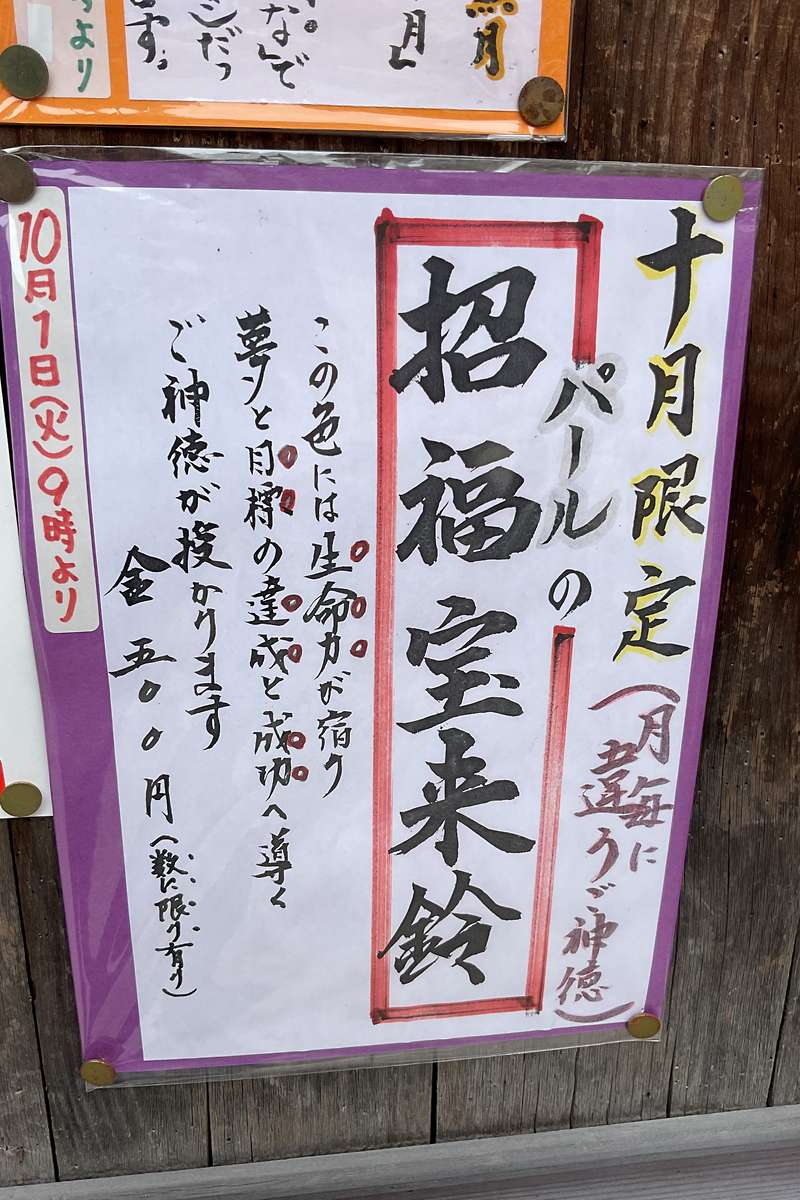 十月限定
(月毎に
違うご神徳)
パールの
招福宝来鈴
この色には生命力が宿り
夢と目標の達成と成功へ導く
ご神徳が授かります
金五〇〇円(数に限り有り)
10月1日(火)9時より
月
月」
な」で
だっ
す。
より